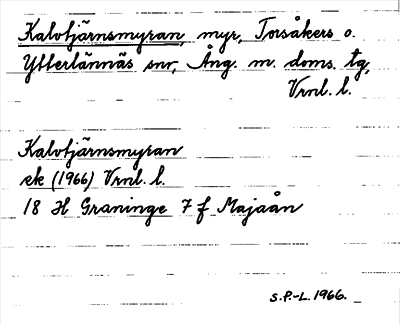 Kalvtjärnsmyran, myr, Torsåkers o.
Ytterlännäs snr, Ång. m. doms. tg,
Vrnl. l.
Kalvtjärnsmyran
ek (1966) Vrnl. l.
18 H Graninge 7 f Majaån
S.P.-L. 1966.